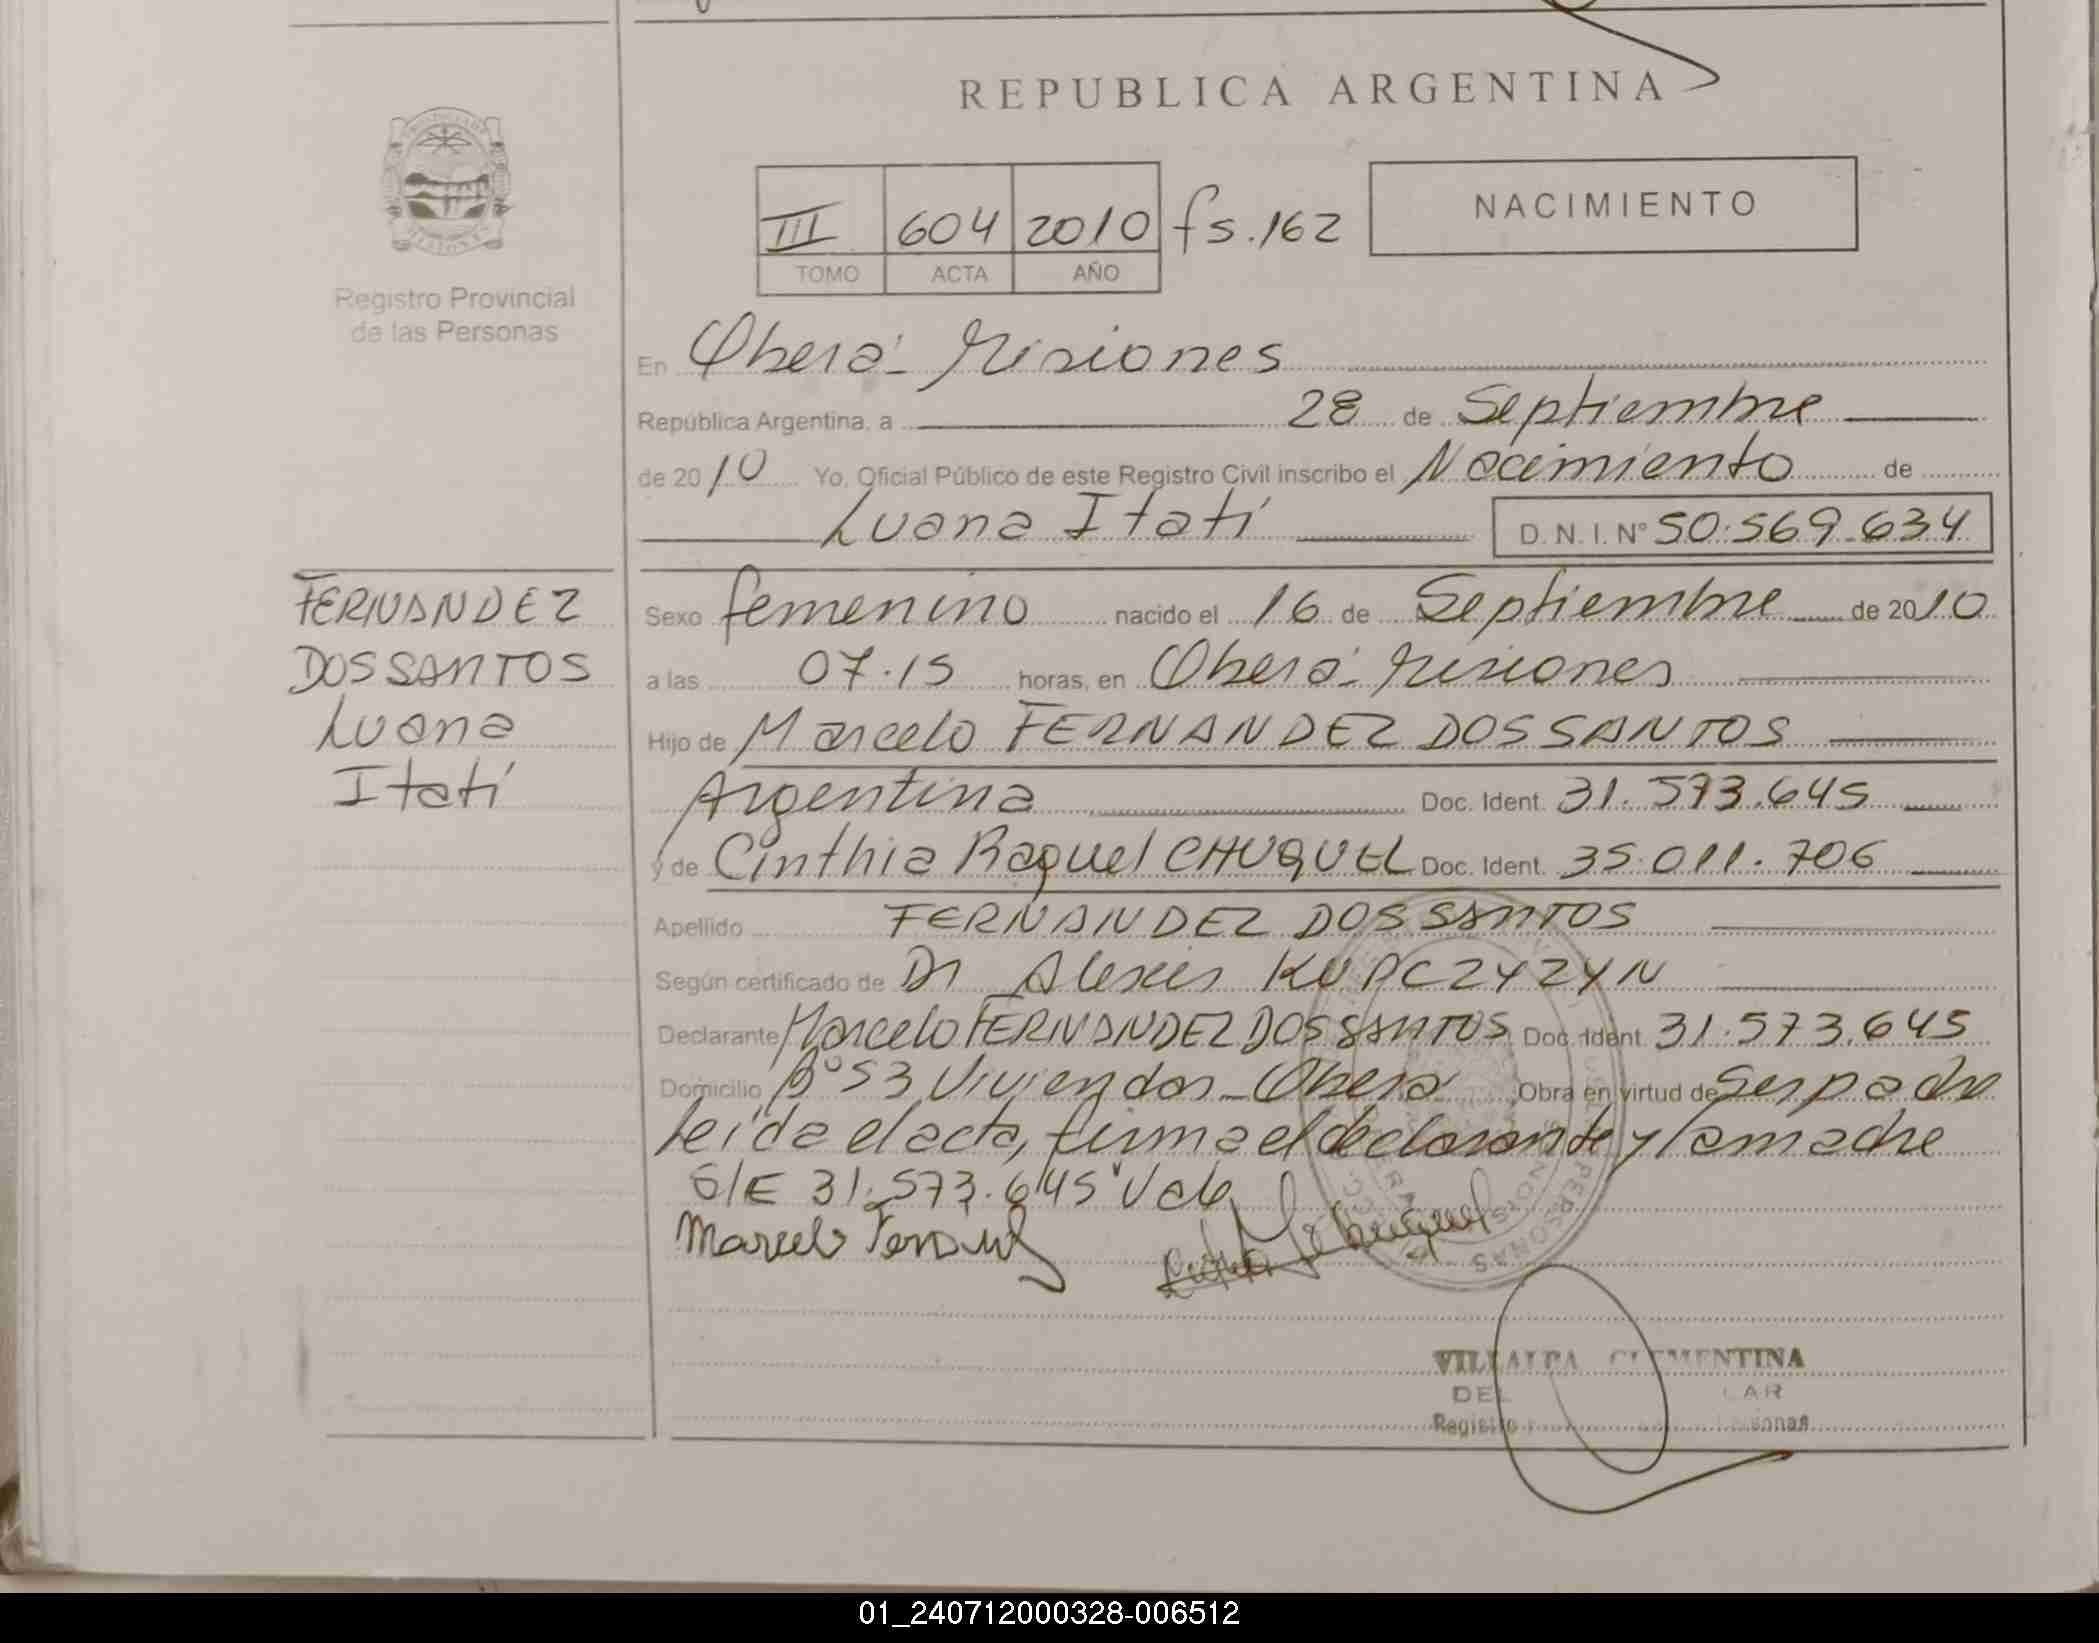 REPUBLICA ARGENTINA
III 604 2010 fs.162
TOMO ACTA AÑO
NACIMIENTO
Registro Provincial
de las Personas
En Oberá - Misiones
República Argentina, a 28 de Septiembre
de 2010 Yo, Oficial Público de este Registro Civil inscribo el Nacimiento de
Luana Itatí D.N.I. Nº 50.569.634
FERNANDEZ
DOS SANTOS
Luana
Itatí
Sexo femenino nacido el 16 de Septiembre de 2010
a las 07.15 horas, en Oberá - Misiones
Hijo de Marcelo FERNANDEZ DOS SANTOS
Argentina Doc. Ident. 31.573.645
y de Cinthia Raquel CHUQUEL Doc. Ident. 35.011.706
Apellido FERNANDEZ DOS SANTOS
Según certificado de Dr Alexis KUPCZYZYN
Declarante Marcelo FERNANDEZ DOS SANTOS Doc. Ident. 31.573.645
Domicilio Bº 53 Viviendas - Oberá Obra en virtud de Ser padre
Leída el acta, firma el declarante y la madre
S/E 31.573.645 Vale
VILLALBA CLEMENTINA
Registro
01_240712000328-006512